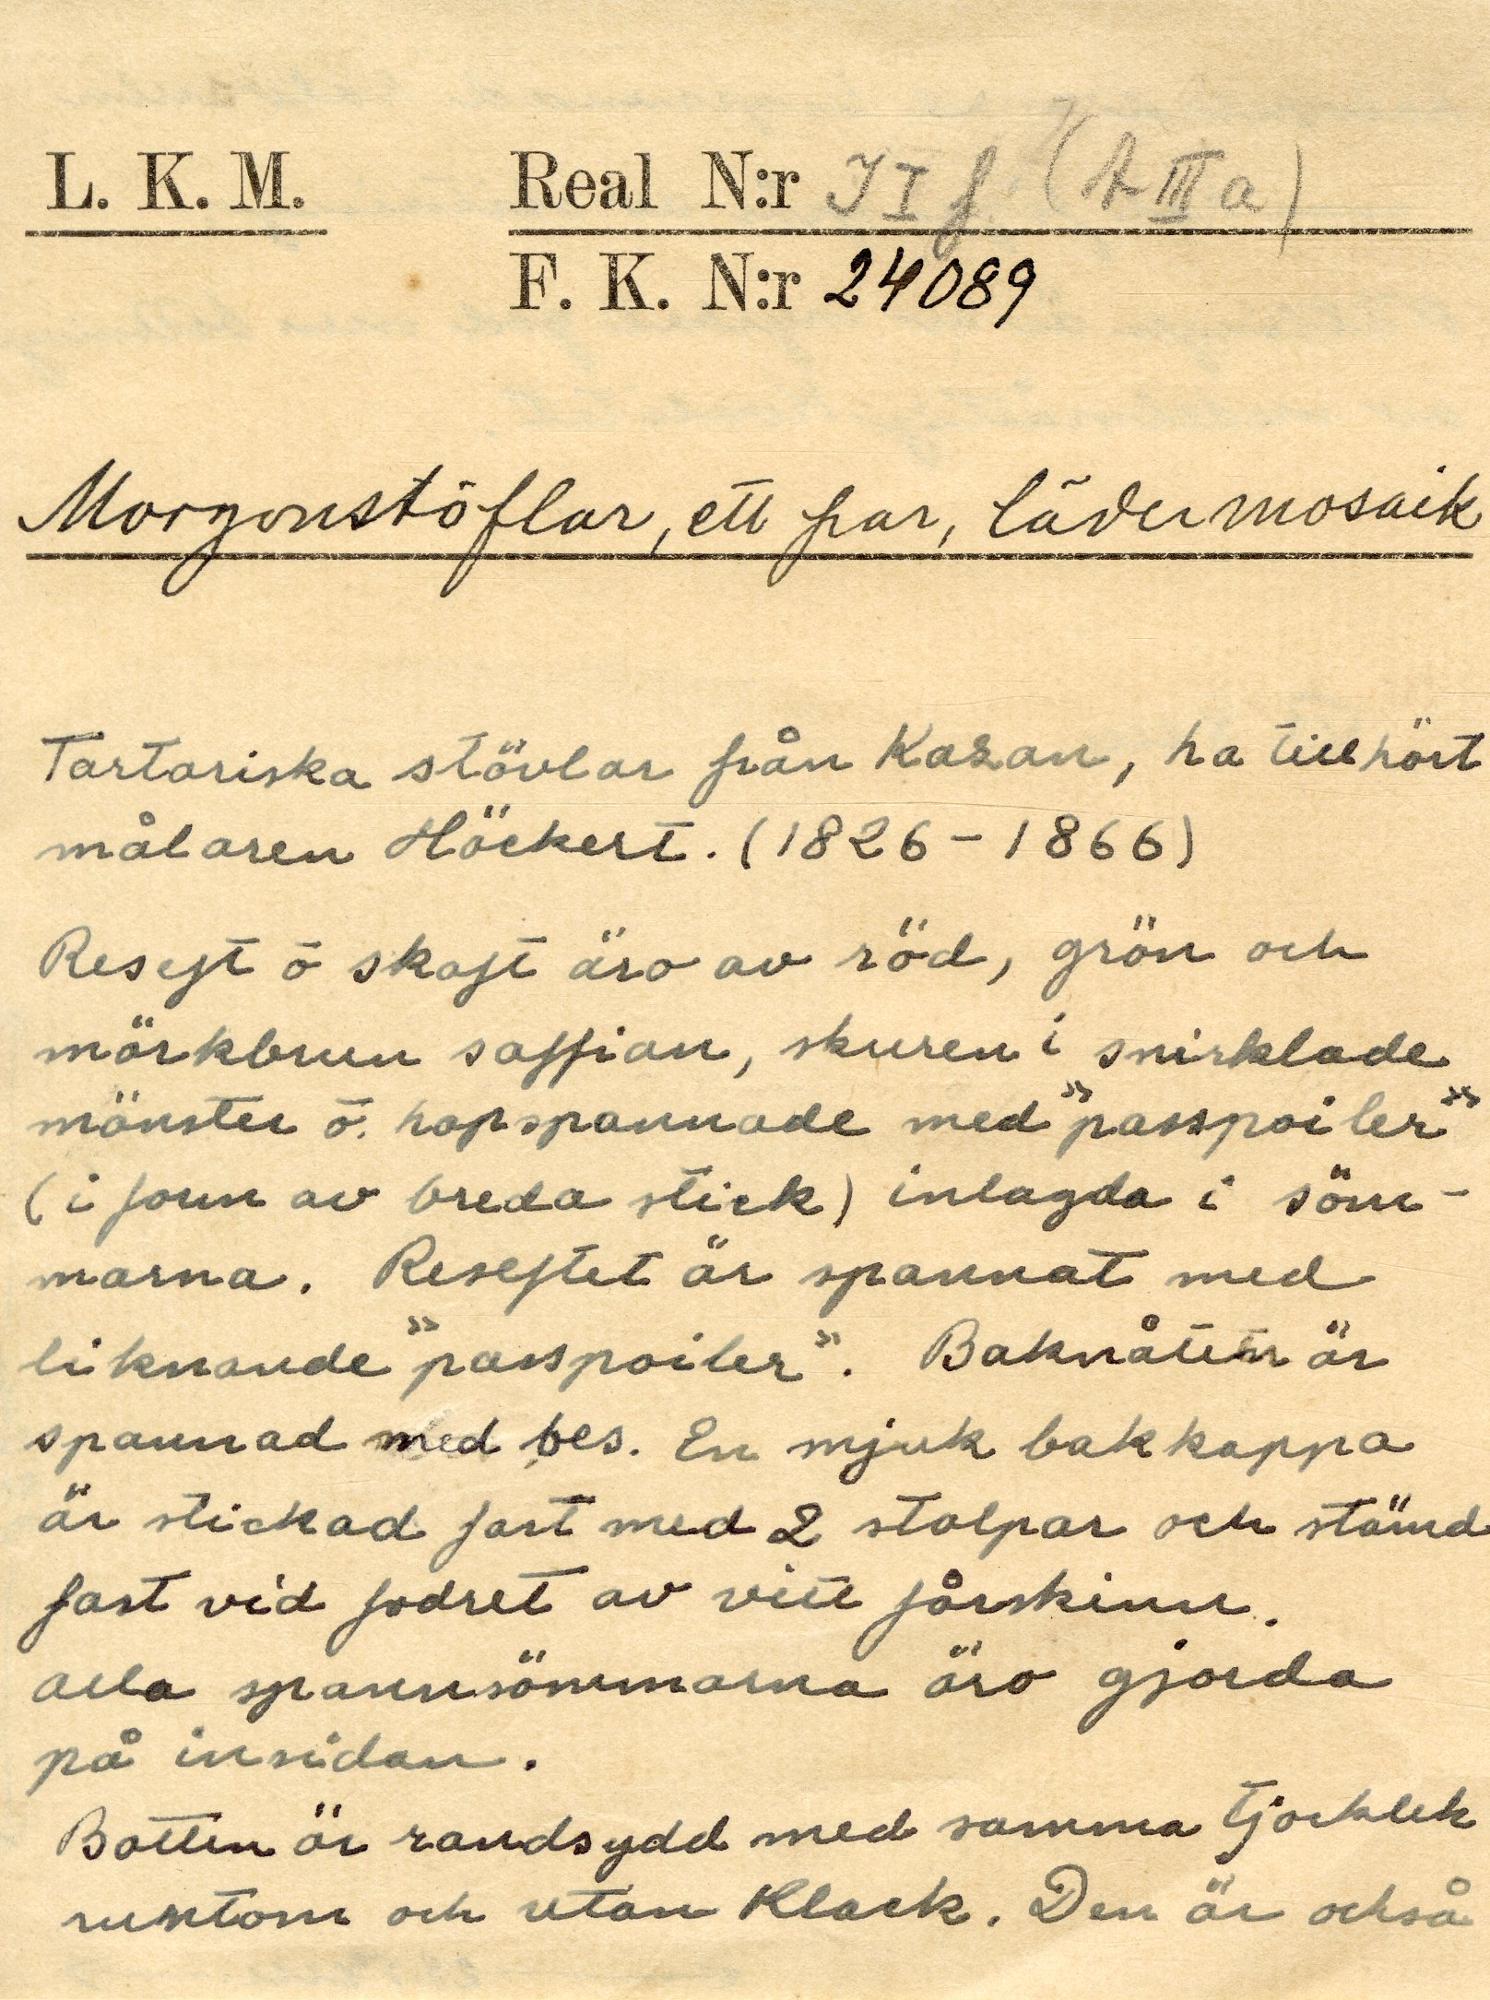 L. K. M. Real N:r I I f. (A III a)
F. K. N:r 24089
Morgonstöflar, ett par, lädermosaik
Tartariska stövlar från Kazan, ha tillhört
målaren Höckert. (1826-1866)
Reseft ō skaft äro av röd, grön och
mörkbrun saffian, skuren i snirklade
mönster ō. hopspannade med "passpoiler"
(i form av breda stick) inlagda i söm-
marna. Reseftet är spannat med
liknande "passpoiler". Baknåten är
spannad med bes. En mjuk bakkappa
är stickad fast med 2 stolpar och stämd
fast vid fodret av vitt fårskinn.
Alla spannsömmarna äro gjorda
på insidan.
Botten är randsydd med samma tjocklek
runtom och utan klack. Den är också